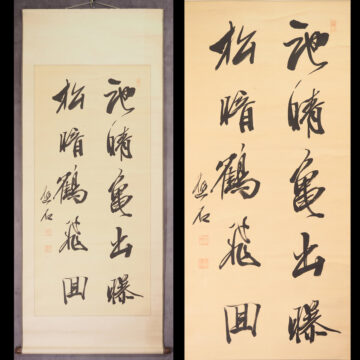 池晴亀出曝
松暗鶴飛回
池晴亀出曝
松暗鶴飛回